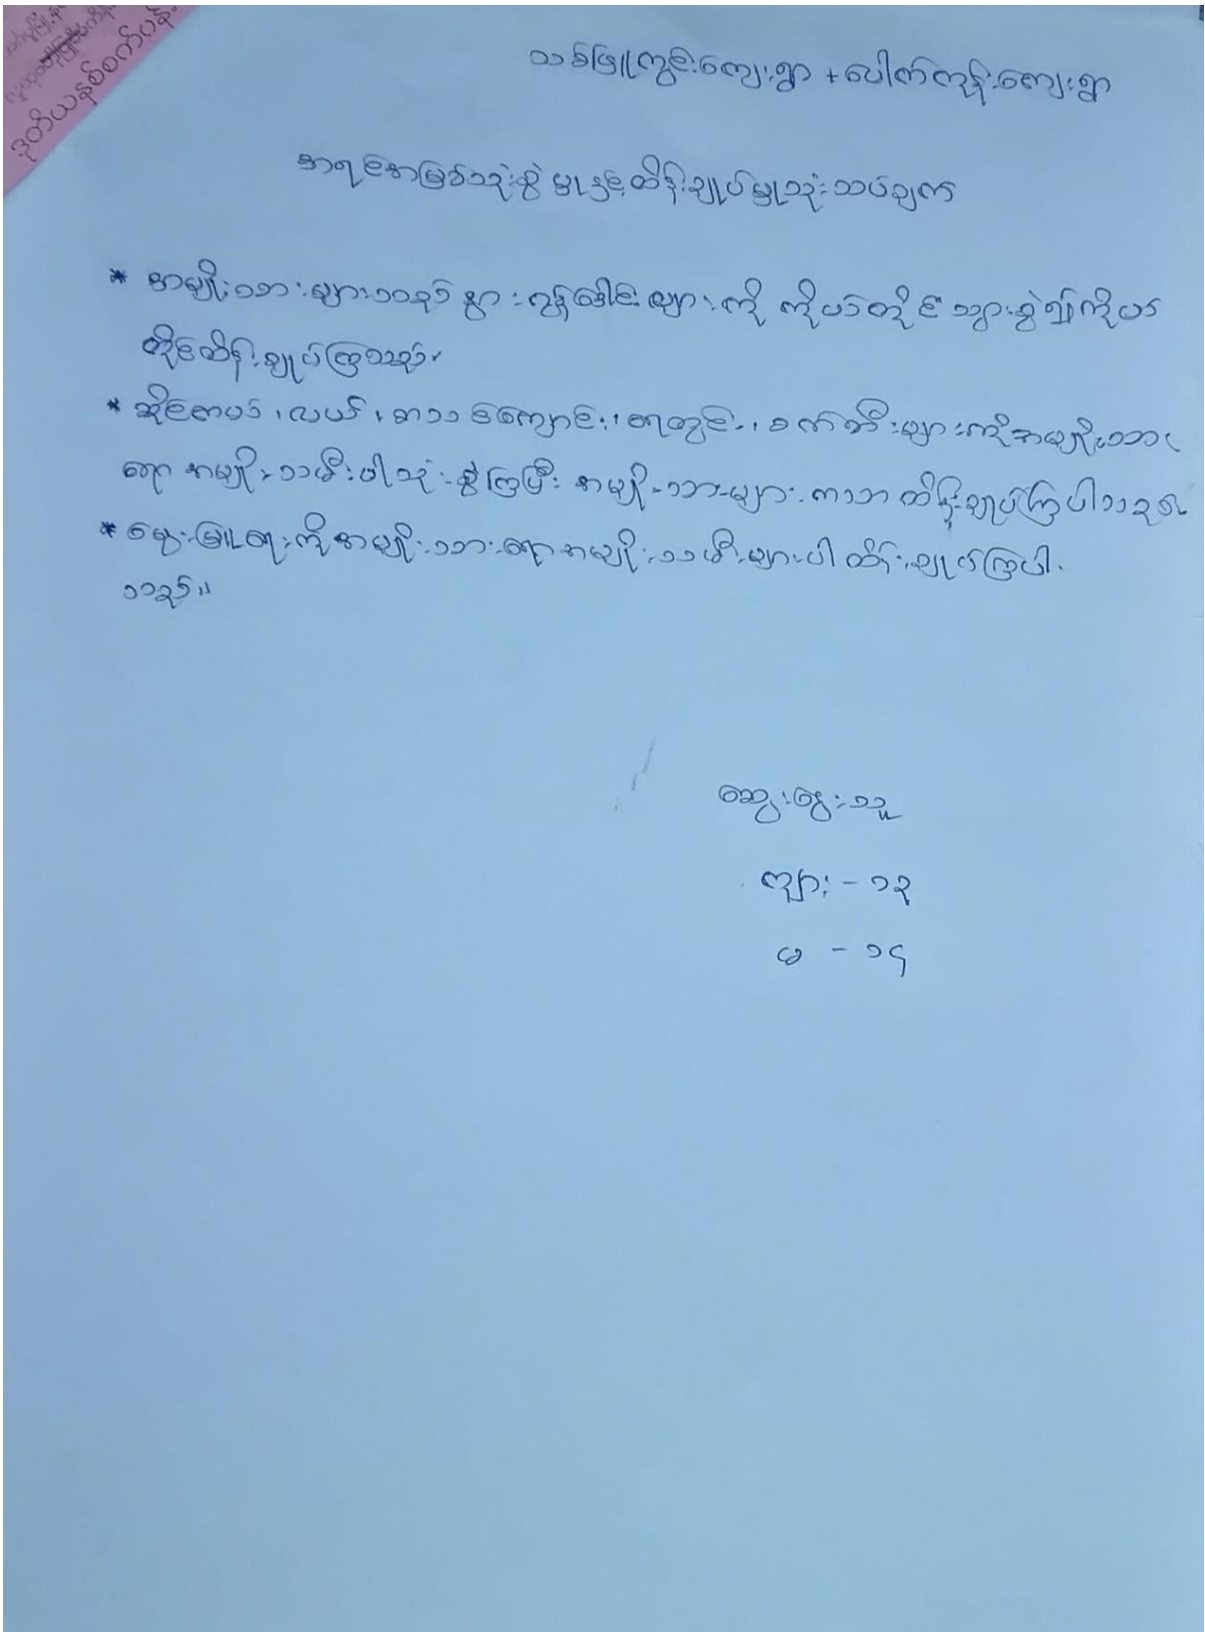 ဒုတိယနှစ်စက်ပန်း
သစ်ဖြူကွင်းကျေးရွာ + ပေါက်ကုန်းကျေးရွာ
အရင်းအမြစ်သုံးစွဲမှုနှင့်ထိန်းချုပ်မှုသုံးသပ်ချက်
* အမျိုးသားများသည် နွား၊ ထွန် များကို ကိုယ်တိုင် သွားစွဲ၍ ကိုယ်
တိုင်ထိန်းချုပ်ကြသည်။
* ဆိုင်ကယ်၊ လယ်၊ စာသင်ကျောင်း၊ ရေတွင်း၊ စက်ဘီးများကိုအမျိုးသား
ရော အမျိုးသမီးပါသုံးစွဲကြပြီး အမျိုးသားများကသာထိန်းချုပ်ကြပါသည်။
* မွေးမြူရေးကိုအမျိုးသားရောအမျိုးသမီးများပါ ထိန်းချုပ်ကြပါ
သည်။
ဆွေးနွေးသူ
ကျား - ၁၃
မ - ၁၄